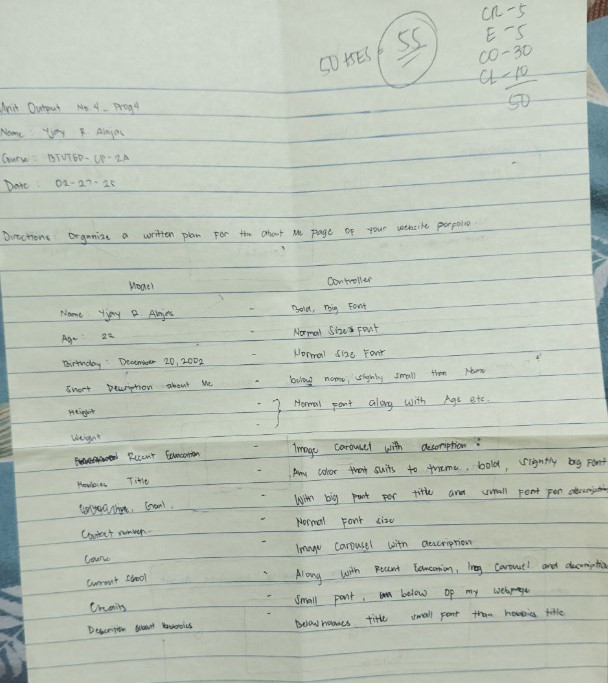 CR - 5
E - 5
CO - 30
CL - 10
50
55
Unit Output No. 4 - Prog4
Name : Yjay R.
Course : BTVTED - CP - 2A
Date : 02-27-25
Directions: Organize a written plan for the about Me page of your website porpolio.
Model Controller
Name : Yjay R. - Bold, Big Font
Age : 22 - Normal Size Font
Birthday : December 20, 2002 - Normal Size Font
Short Description about Me - below name, slighly small than Name
Height - } Normal Font along with Age etc.
Weight -
Recent Education - Image Carousel with description
Hobbies Title - Any color that suits to theme, bold, slightly big Font
Email. - With big font for title and small font for
Contact number. - Normal Font size
Course - Image Carousel with description
Current School - Along with Recent Education, Img Carousel and
Credits - Small font, below of my webpage
Description about hobbies - Below title small font than hobbies title